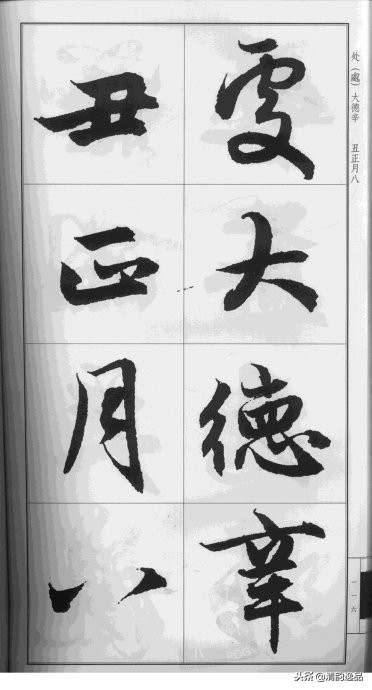 处（處）大德辛 丑正月八
處大德辛
丑正月八
一一六
头条@清韵逸品